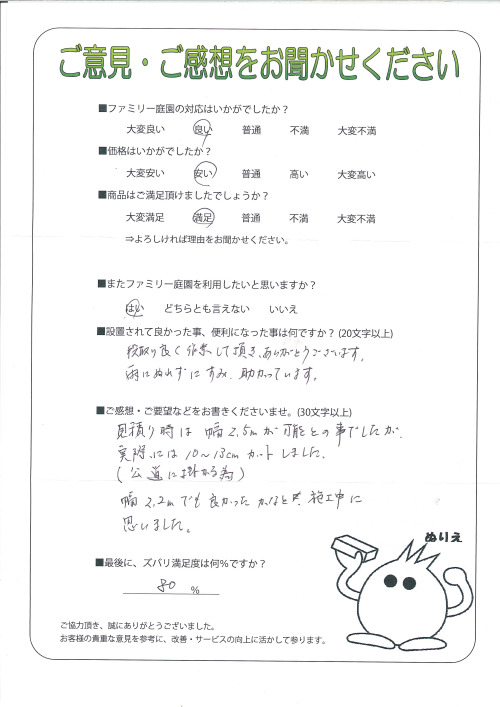 ご意見・ご感想をお聞かせください
■ファミリー庭園の対応はいかがでしたか？
大変良い 良い 普通 不満 大変不満
■価格はいかがでしたか？
大変安い 安い 普通 高い 大変高い
■商品はご満足頂けましたでしょうか？
大変満足 満足 普通 不満 大変不満
⇒よろしければ理由をお聞かせください。
■またファミリー庭園を利用したいと思いますか？
はい どちらとも言えない いいえ
■設置されて良かった事、便利になった事は何ですか？(20文字以上)
段取り良く作業して頂き、ありがとうございます。
雨にぬれずにすみ、助かっています。
■ご感想・ご要望などをお書きくださいませ。(30文字以上)
見積り時は 幅2.5mが可能との事でしたが、
実際には10～13cmカットしました。
(公道に掛かる為)
幅2.2mでも良かったかなと、施工中に
思いました。
ぬりえ
■最後に、ズバリ満足度は何％ですか？
80 %
ご協力頂き、誠にありがとうございました。
お客様の貴重な意見を参考に、改善・サービスの向上に活かして参ります。